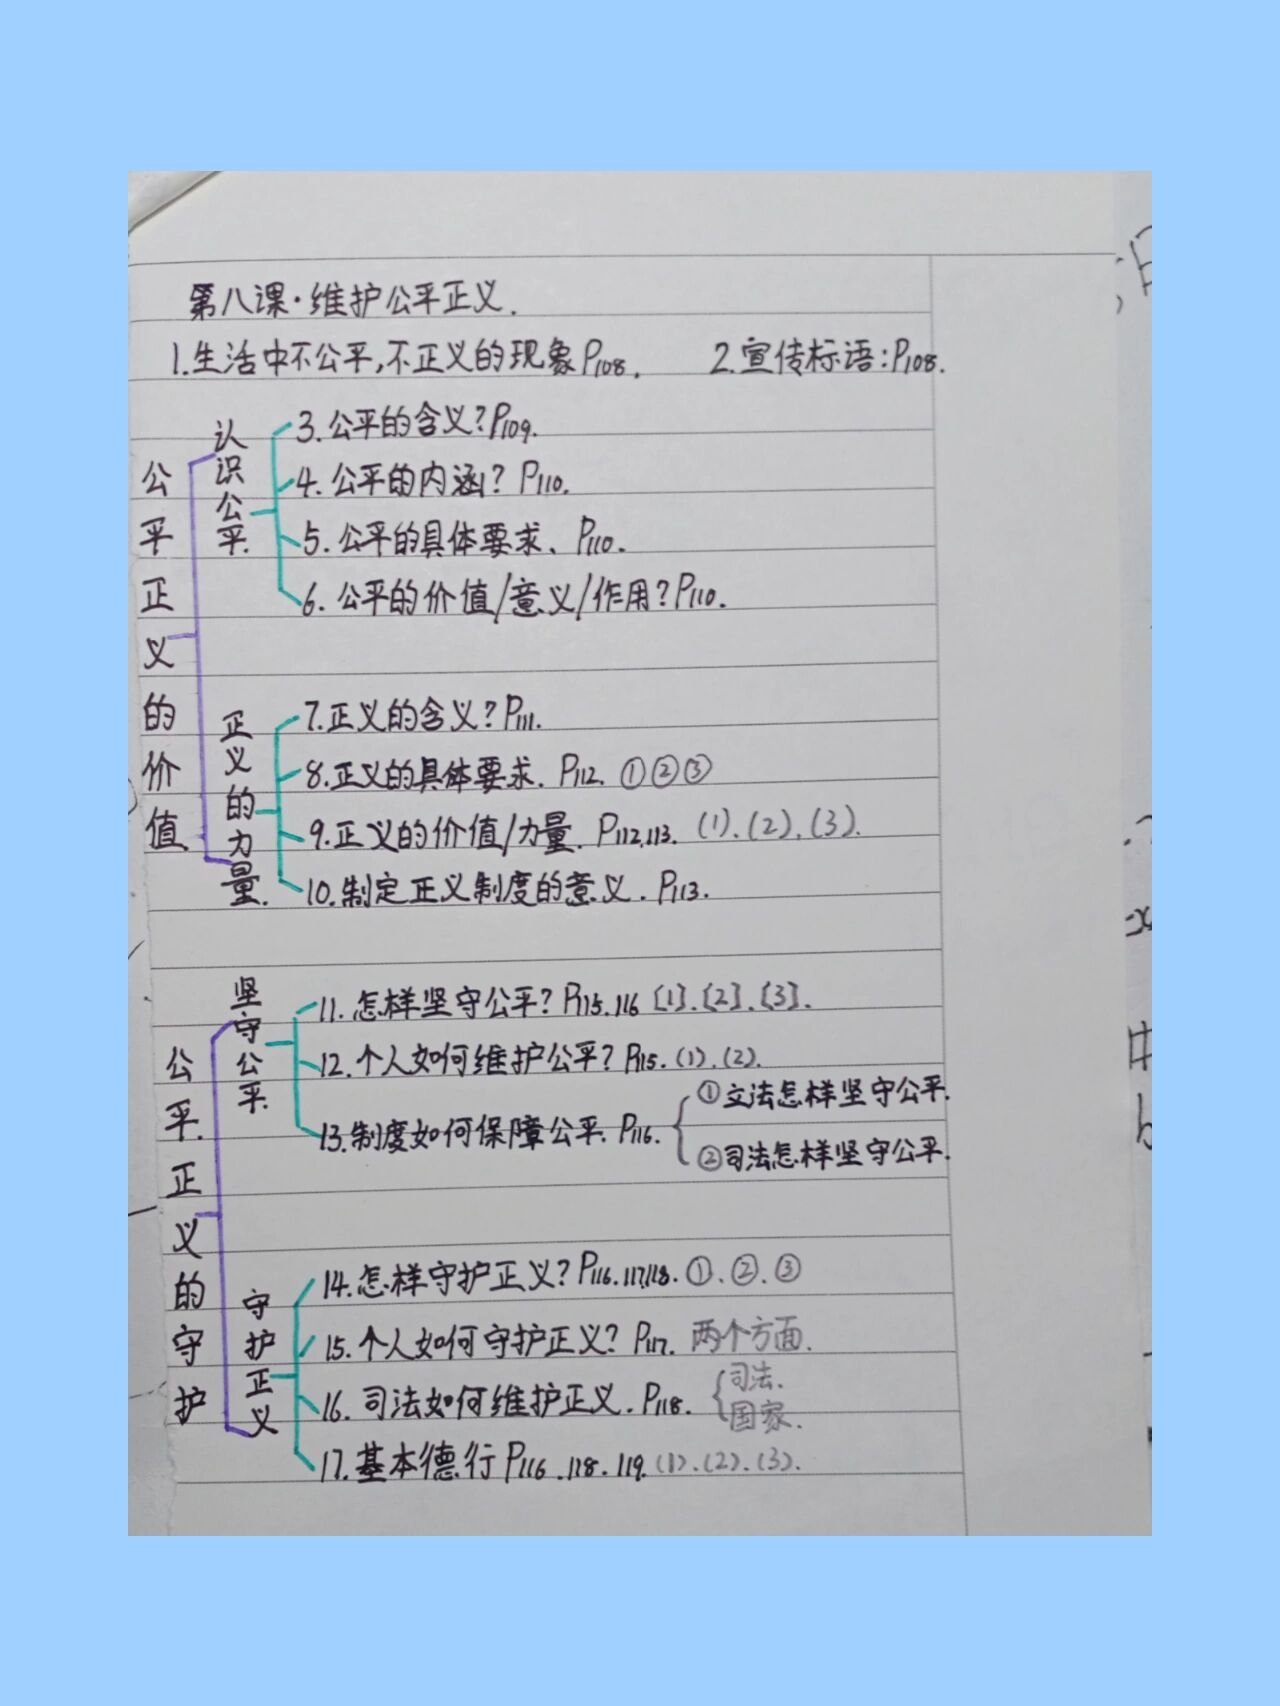 第八课·维护公平正义.
1.生活中不公平,不正义的现象P108. 2.宣传标语:P108.
公平正义的价值
认识公平.
3.公平的含义?P109.
4.公平的内涵? P110.
5.公平的具体要求. P110.
6.公平的价值/意义/作用?P110.
正义的力量.
7.正义的含义?P111.
8.正义的具体要求. P112. ①②③
9.正义的价值/力量. P112,113. (1).(2).(3).
10.制定正义制度的意义. P113.
公平正义的守护
坚守公平.
11.怎样坚守公平?P115.116 [1].[2].[3].
12.个人如何维护公平?P115.(1).(2).
13.制度如何保障公平. P116.
①立法怎样坚守公平.
②司法怎样坚守公平.
守护正义
14.怎样守护正义?P116.117.118. ①.②.③
15.个人如何守护正义?P117. 两个方面.
16.司法如何维护正义. P118.
司法.
国家.
17.基本德行P116.118.119.(1).(2).(3).